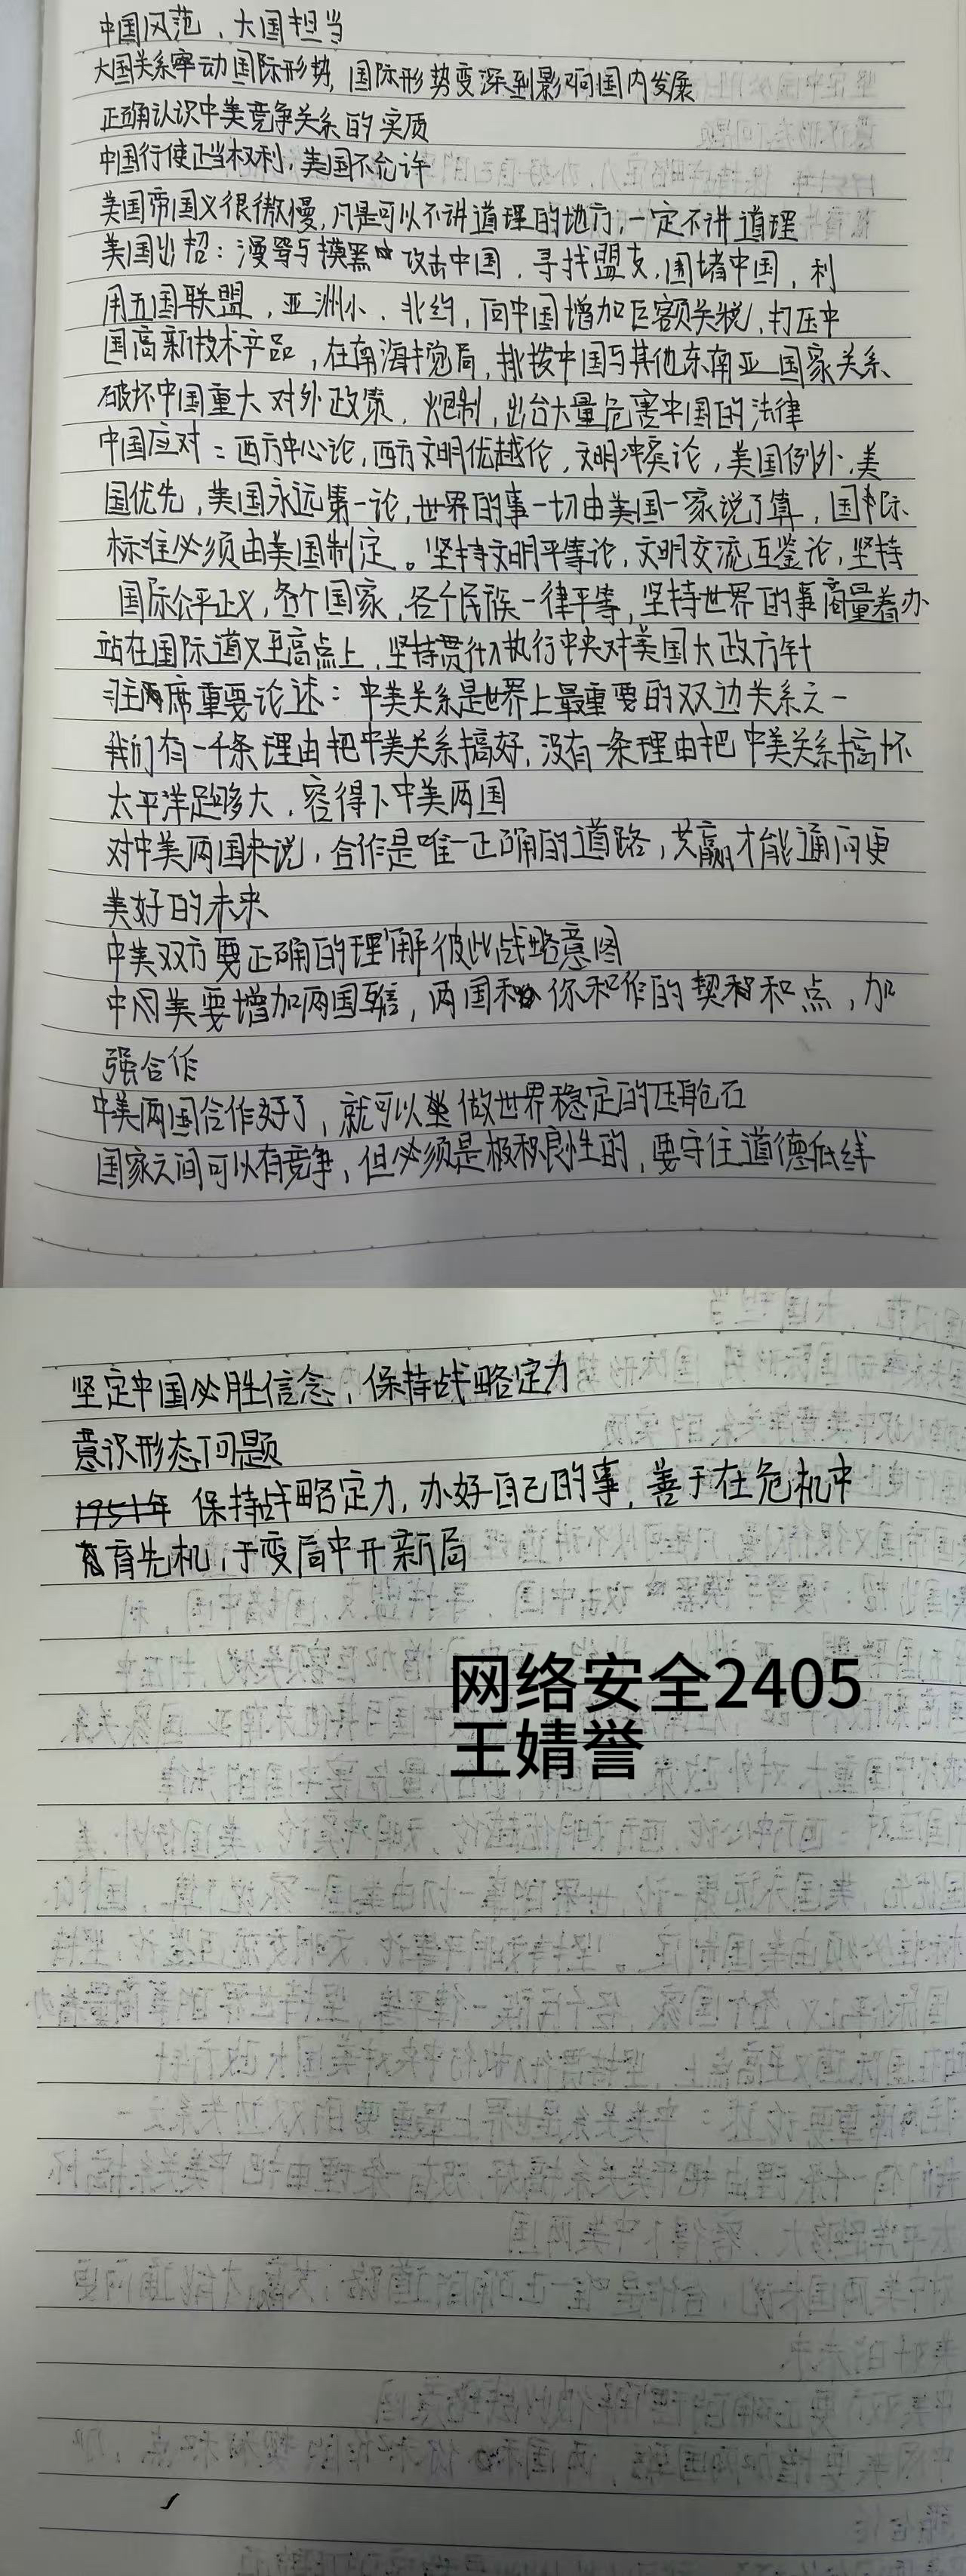 中国风范，大国担当
大国关系牵动国际形势，国际形势变深刻影响国内发展
正确认识中美竞争关系的实质
中国行使正当权利，美国不允许
美国帝国义很傲慢，凡是可以不讲道理的地方，一定不讲道理
美国出招：漫骂与摸黑 攻击中国，寻找盟友，围堵中国，利
用五国联盟，亚洲小，北约，向中国增加巨额关税，打压中
国高新技术产品，在南海搅局，挑拨中国与其他东南亚国家关系
破坏中国重大对外政策，炮制，出台大量危害中国的法律
中国应对：西方中心论，西方文明优越伦，文明冲突论，美国例外，美
国优先，美国永远第一论，世界的事一切由美国一家说了算，国际
标准必须由美国制定。坚持文明平等论，文明交流互鉴论，坚持
国际公平正义，各个国家，各个民族一律平等，坚持世界的事商量着办
站在国际道义至高点上，坚持贯彻执行中央对美国大政方针
习主席重要论述：中美关系是世界上最重要的双边关系之一
我们有一千条理由把中美关系搞好，没有一条理由把中美关系搞坏
太平洋足够大，容得下中美两国
对中美两国来说，合作是唯一正确的道路，共赢才能通向更
美好的未来
中美双方要正确的理解彼此战略意图
中美要增加两国互信，两国和你和作的契和点，加
强合作
中美两国合作好了，就可以做世界稳定的压舱石
国家之间可以有竞争，但必须是极积良性的，要守住道德低线
坚定中国必胜信念，保持战略定力
意识形态问题
1951年 保持战略定力，办好自己的事，善于在危机中
育先机，于变局中开新局
网络安全2405
王婧誉